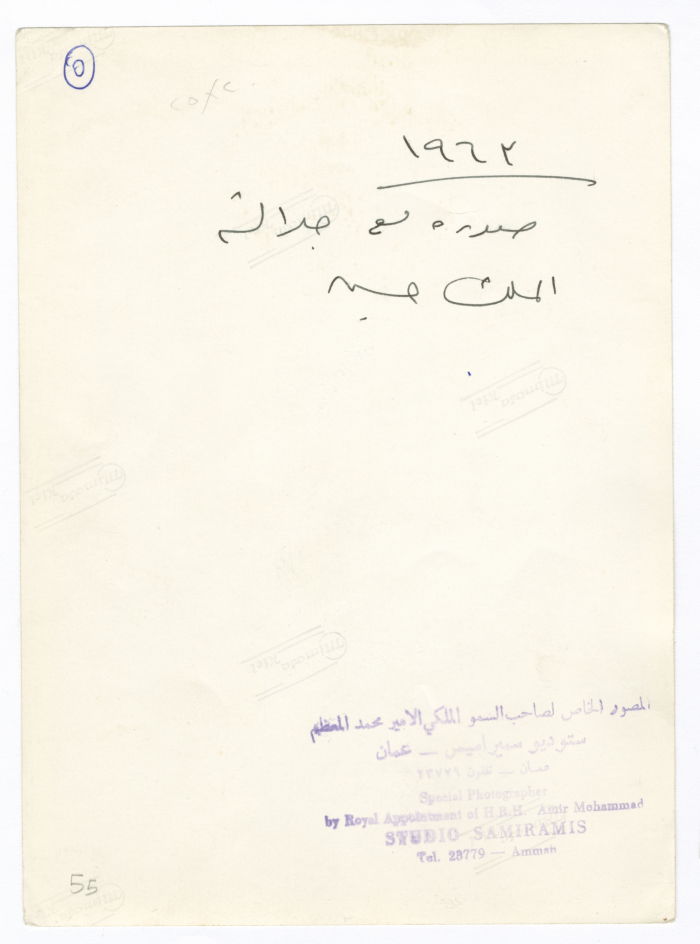 ٥
١٩٦٢
صوره مع جلالة
الملك حسين
المصور الخاص لصاحب السمو الملكي الامير محمد المعظم
ستوديو سميراميس — عمان
عمان — تلفون ٢٣٧٧٩
Special Photographer
by Royal Appointment of H.R.H. Amir Mohammad
STUDIO SAMIRAMIS
Tel. 23779 — Amman
55